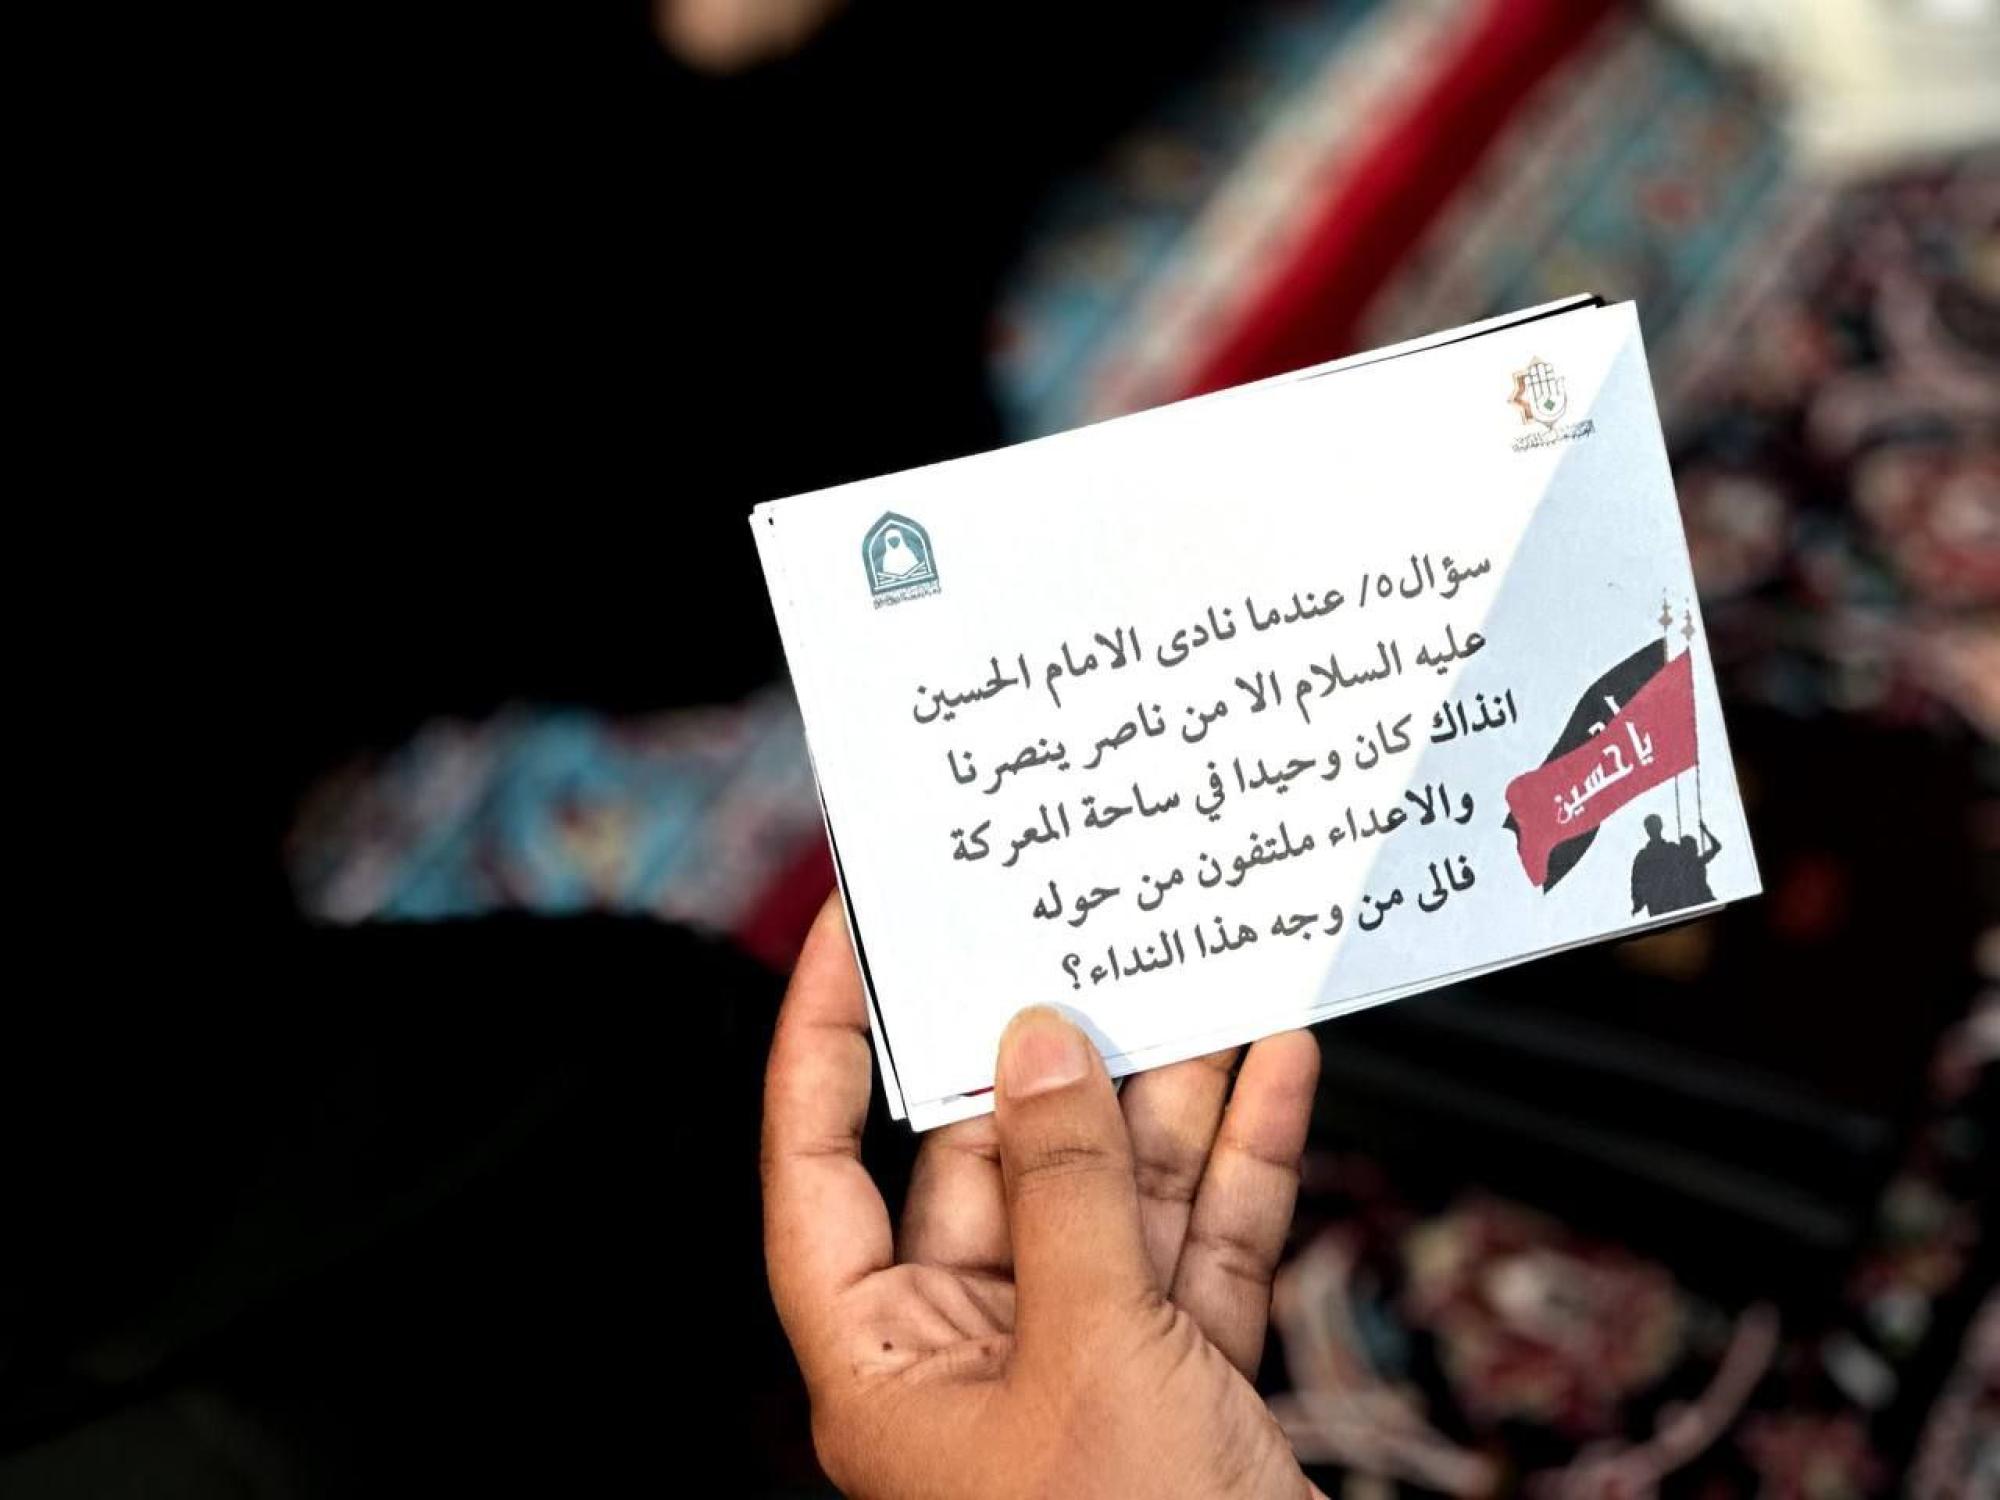 سؤال٥/ عندما نادى الامام الحسين
عليه السلام الا من ناصر ينصرنا
انذاك كان وحيدا في ساحة المعركة
والاعداء ملتفون من حوله
فالى من وجه هذا النداء؟
ياحسين